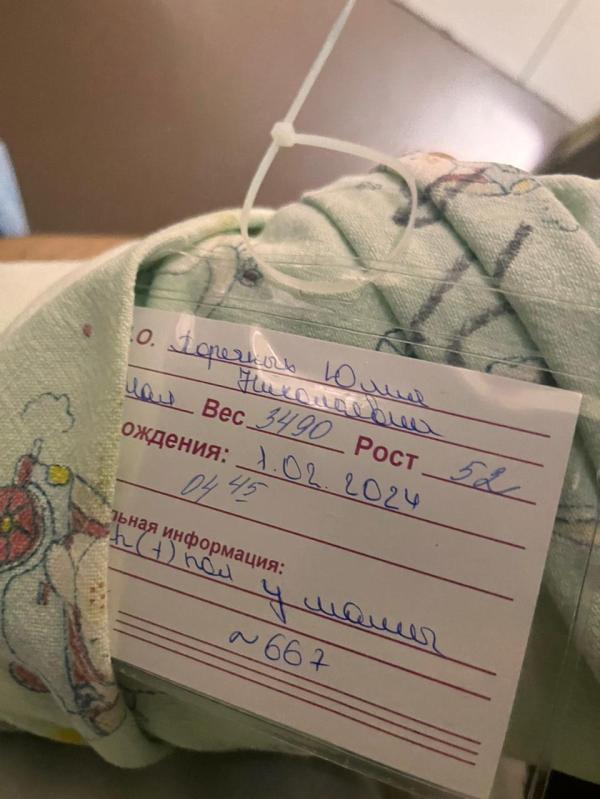 .О. Юлия
Николаевна
Вес 3490 Рост 52
ождения: 1.02.2024
04 45
льная информация:
h(+) пол у мамы
~667